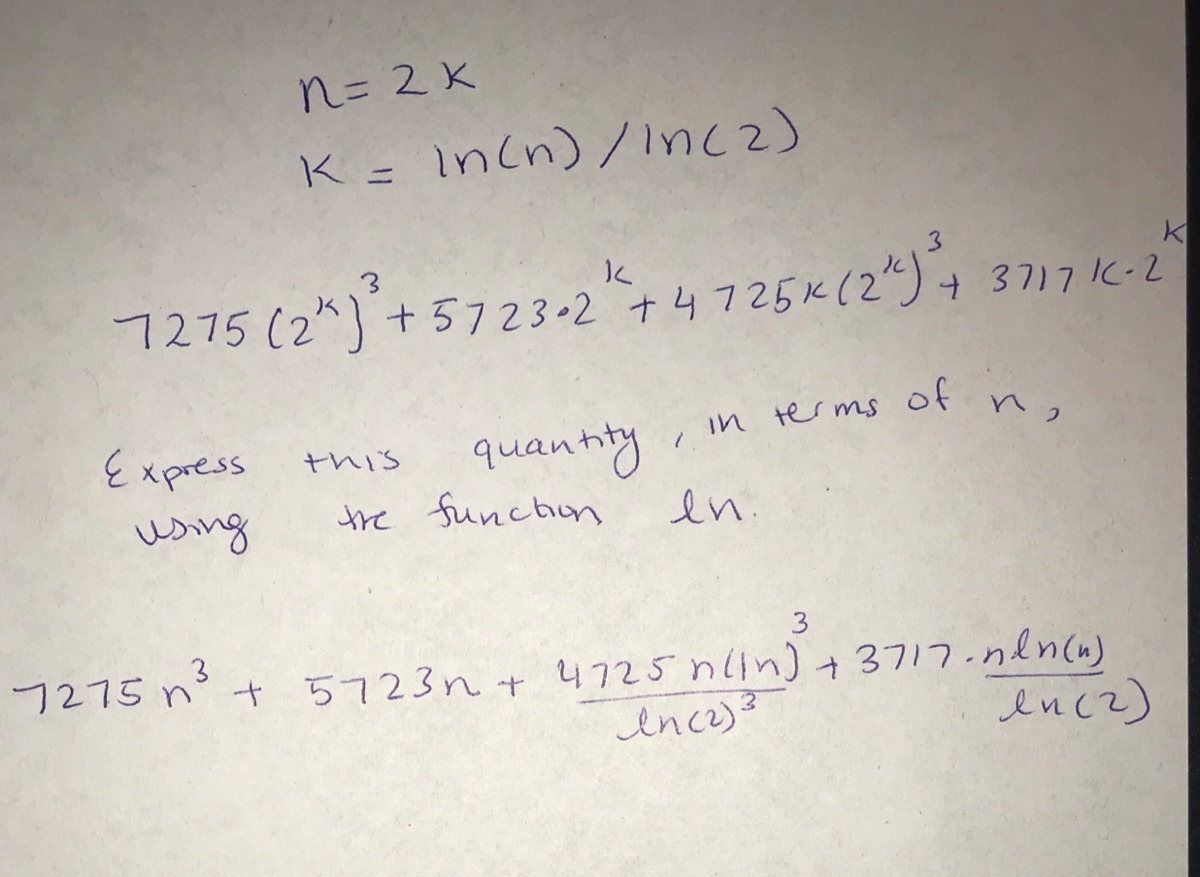 n = 2 k
k = ln(n) / ln(2)
7275 (2^k)^3 + 5723 • 2^k + 4725k (2^k)^3 + 3717 k · 2^k
Express this quantity, in terms of n,
using the function ln.
7275 n^3 + 5723n + 4725 n(ln)^3 / ln(2)^3 + 3717 · n ln(n) / ln(2)